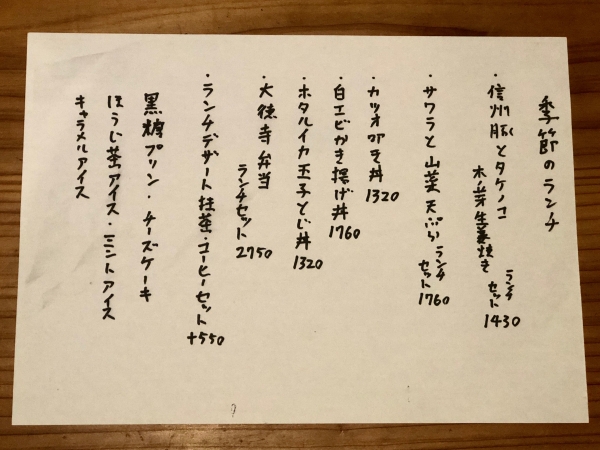 季節のランチ
・信州豚とタケノコ
木ノ芽生姜焼き
ランチ
セット
1430
・サワラと山菜天ぷら
ランチ
セット
1760
・カツオ叩き丼
1320
・白エビかき揚げ丼
1760
・ホタルイカ玉子とじ丼
1320
・大徳寺弁当
ランチセット
2750
・ランチデザート抹茶・コーヒーセット
+550
黒糖プリン・チーズケーキ
ほうじ茶アイス・ミントアイス
キャラメルアイス